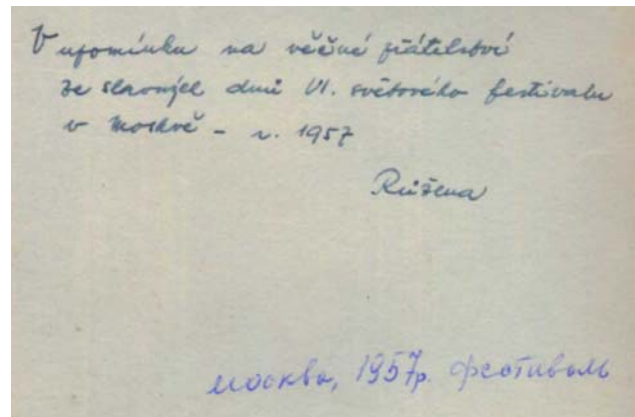 V upomínku na věčné přátelství
ze slavných dnů VI. světového festivalu
v Moskvě - r. 1957
Růžena
Москва, 1957р. фестиваль